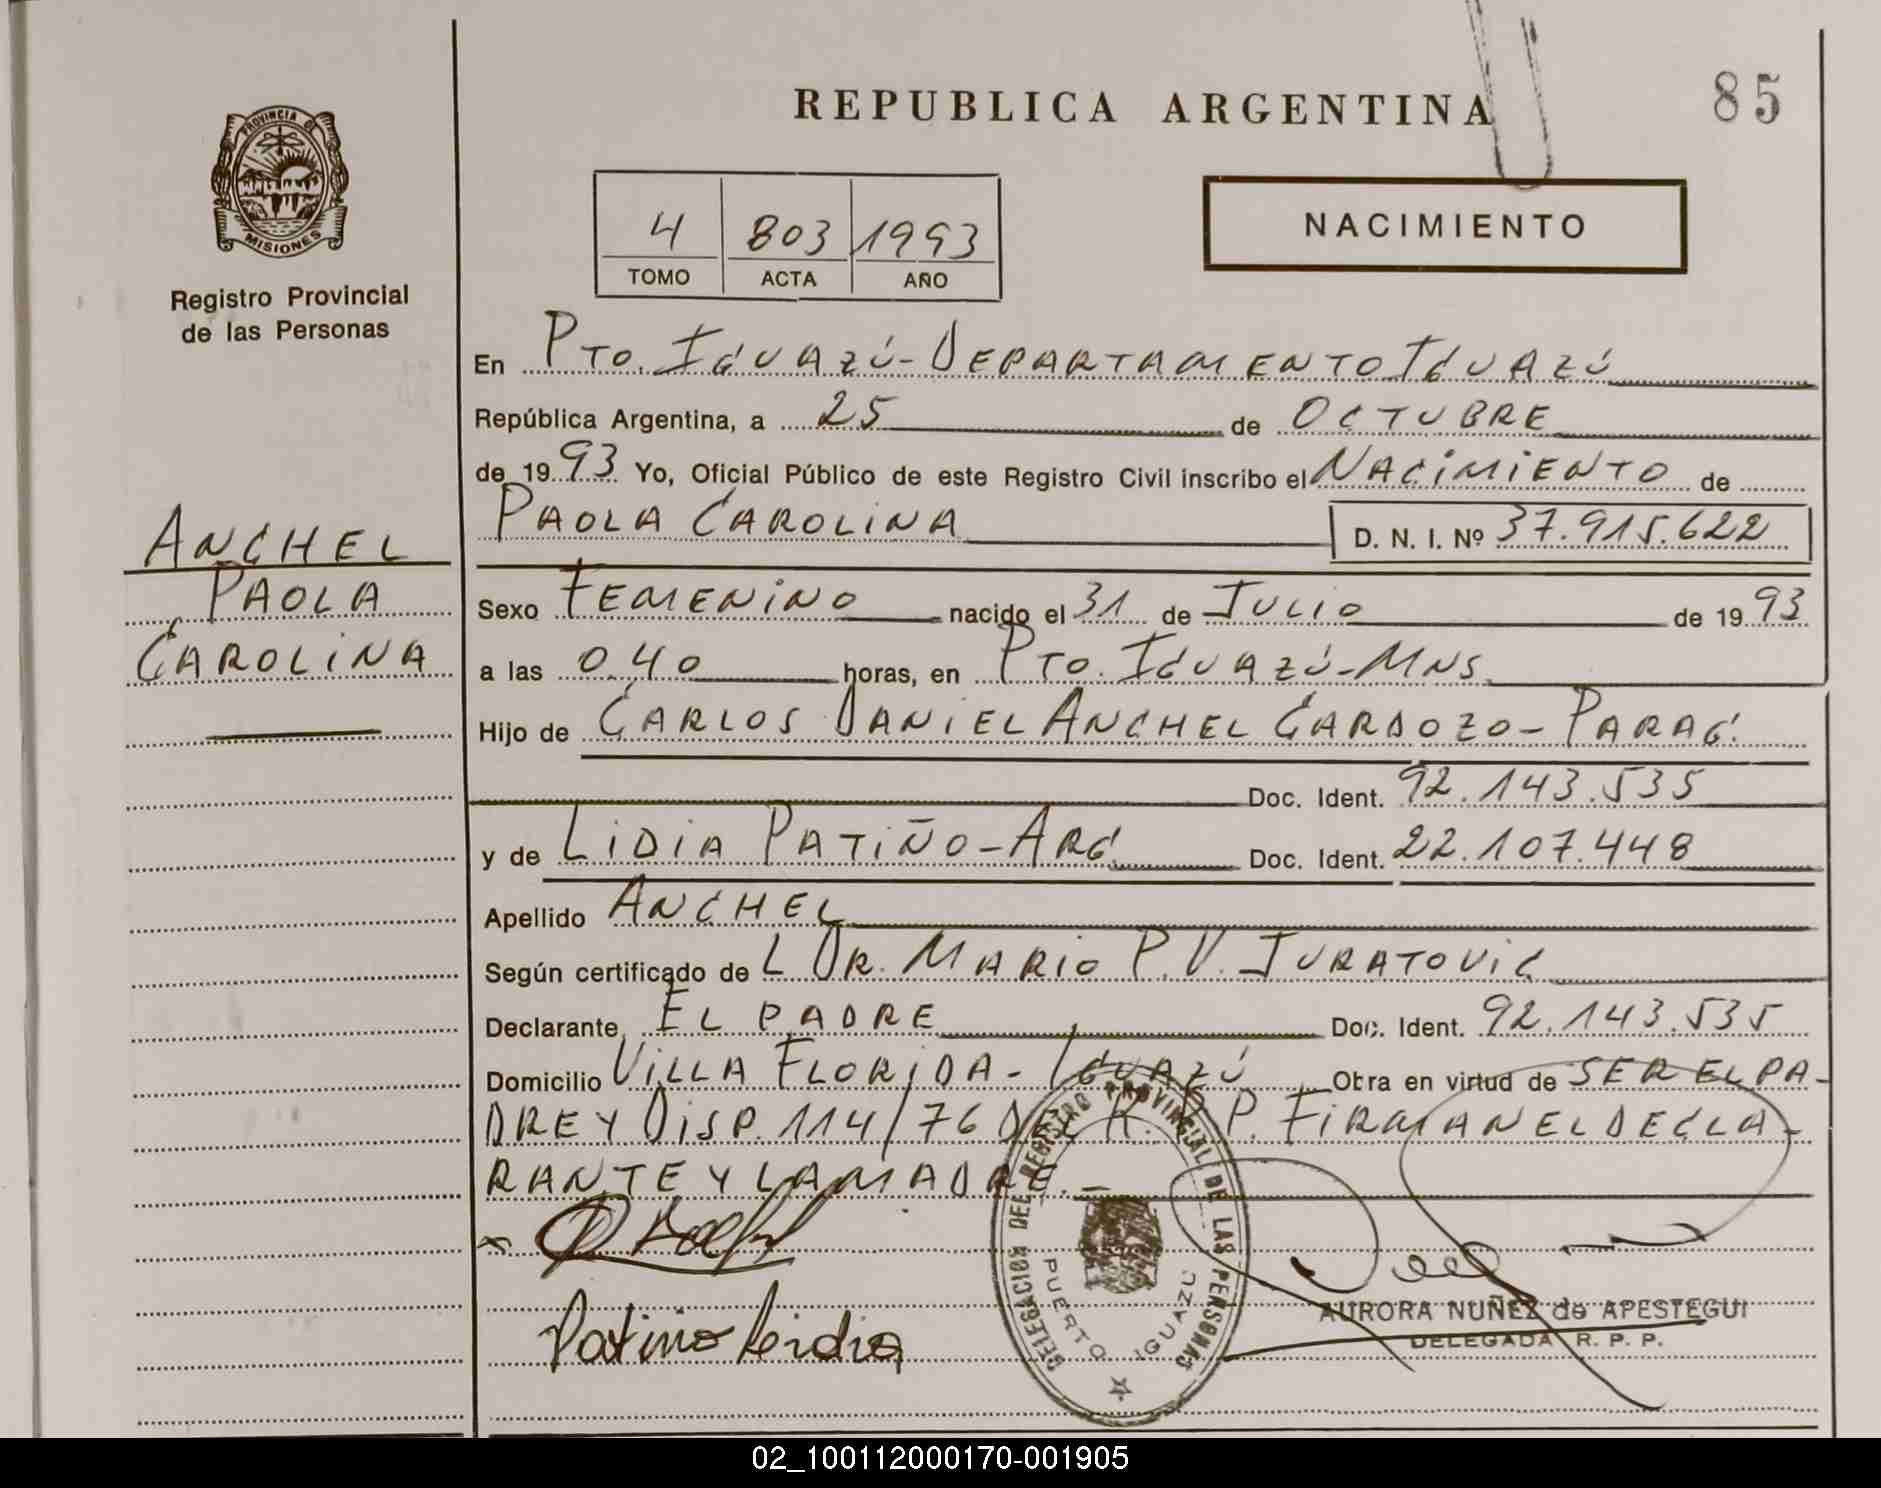 REPUBLICA ARGENTINA
85
PROVINCIA DE
MISIONES
Registro Provincial
de las Personas
4 803 1993
TOMO ACTA AÑO
NACIMIENTO
En PTO. IGUAZÚ - DEPARTAMENTO IGUAZÚ
República Argentina, a 25 de OCTUBRE
de 1993 Yo, Oficial Público de este Registro Civil inscribo el NACIMIENTO de
PAOLA CAROLINA D. N. I. Nº 37.915.622
ANCHEL
PAOLA
CAROLINA
Sexo FEMENINO nacido el 31 de JULIO de 1993
a las 0,40 horas, en PTO. IGUAZÚ - MNS.
Hijo de CARLOS DANIEL ANCHEL CARDOZO - PARAG.
Doc. Ident. 92.143.535
y de LIDIA PATIÑO - ARG. Doc. Ident. 22.107.448
Apellido ANCHEL
Según certificado de L DR. MARIO P. V. JURATOVIC
Declarante EL PADRE Doc. Ident. 92.143.535
Domicilio VILLA FLORIDA - IGUAZÚ Obra en virtud de SER EL PA-
DRE Y DISP. 114/76 DEL R. P. P. FIRMAN EL DECLA-
RANTE Y LA MADRE. -
Patiño Lidia
DELEGACION DEL REGISTRO PROVINCIAL DE LAS PERSONAS
PUERTO IGUAZU
AURORA NUÑEZ de APESTEGUI
DELEGADA R. P. P.
02_100112000170-001905